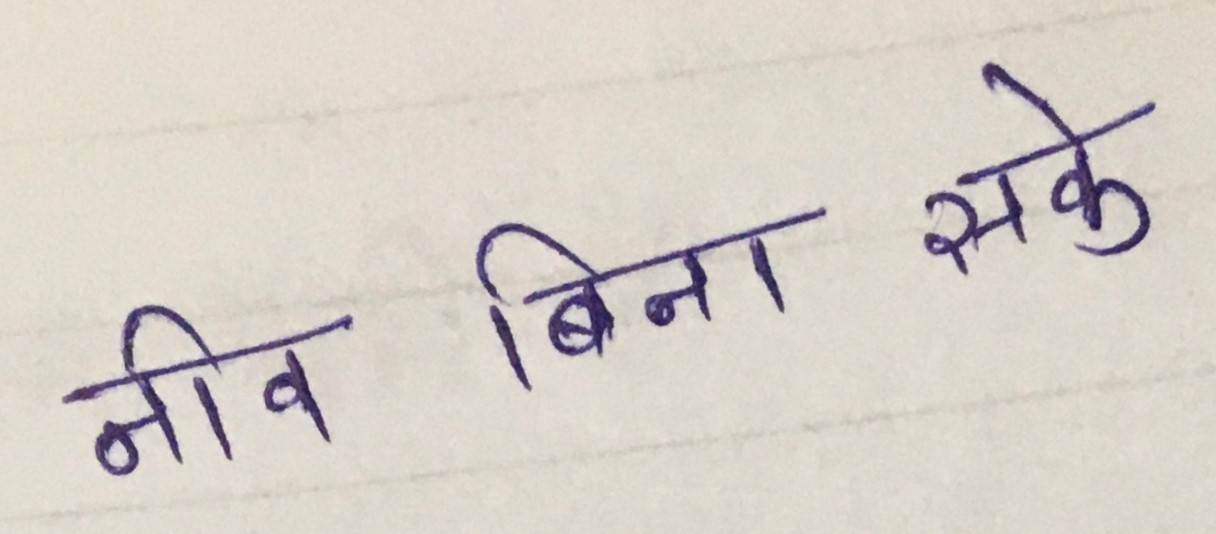 नीव बिना सके